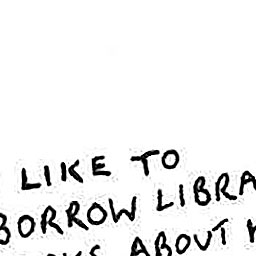 LIKE TO
BORROW LIBRA
ABOUT